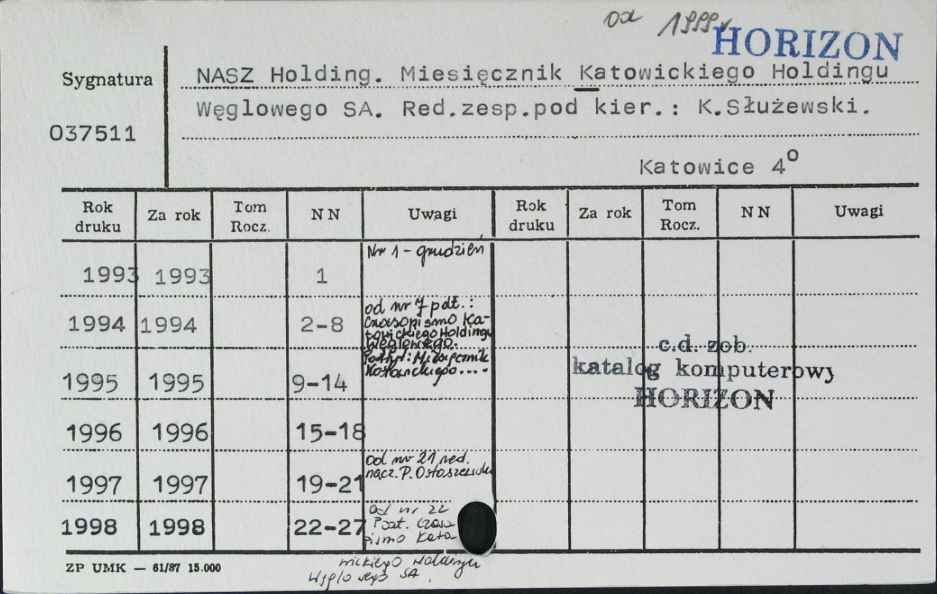 od 1999 r
HORIZON
Sygnatura
NASZ Holding. Miesięcznik Katowickiego Holdingu
Węglowego SA. Red.zesp.pod kier.: K.Służewski.
037511
Katowice 4°
Rok druku Za rok Tom Rocz. NN Uwagi Rok druku Za rok Tom Rocz. NN Uwagi
1993 1993 1 Nr 1 - grudzień
1994 1994 2-8
od nr 7 pdt.:
Czasopismo Ka-
towickiego Holdingu
Węglowego.
Miesięcznik
1995 1995 9-14
c.d. zob.
katalog komputerowy
HORIZON
1996 1996 15-18
1997 1997 19-21
od nr 21 red.
nacz. P.
1998 1998 22-27
od nr 22
Podt. Czaso
pismo Kato
wickiego Holdingu
Węglowego SA.
ZP UMK — 61/87 15.000